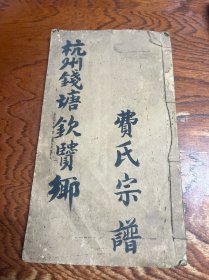 杭州錢塘欽賢鄉
費氏宗譜